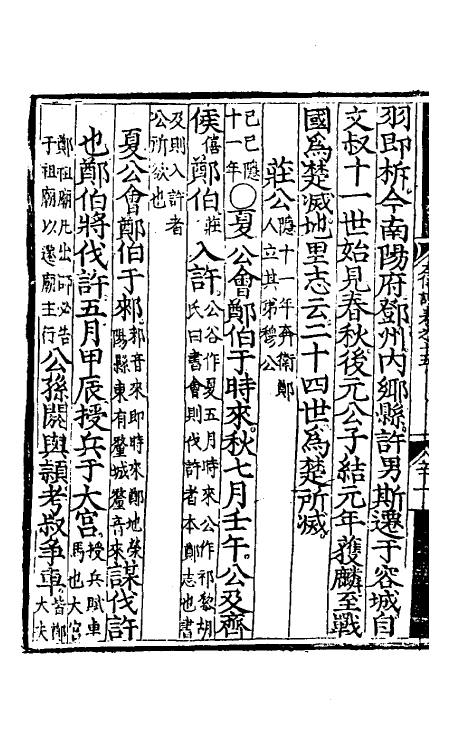 羽即析今南陽府鄧州内鄉縣許男斯遷于容城自
文叔十一世始見春秋後元公子結元年獲麟至戰
國為楚滅地里志云二十四世為楚所滅
莊公隱十一年奔衛鄭人立其弟穆公
己巳隱十一年〇夏公會鄭伯于時來秋七月壬午公及齊
侯僖鄭伯莊入許公谷作夏五月時來公作祁黎胡氏曰書會則伐許者本鄭志也書
及則入許者公所欲也
夏公會鄭伯于郲郲音來即時來鄭地滎陽縣東有釐城釐音來謀伐許
也鄭伯將伐許五月甲辰授兵于大宮授兵賦車馬也大宮
鄭祖廟凡出師必告于祖廟以遷廟主行公孫閼與潁考叔爭車皆鄭大夫